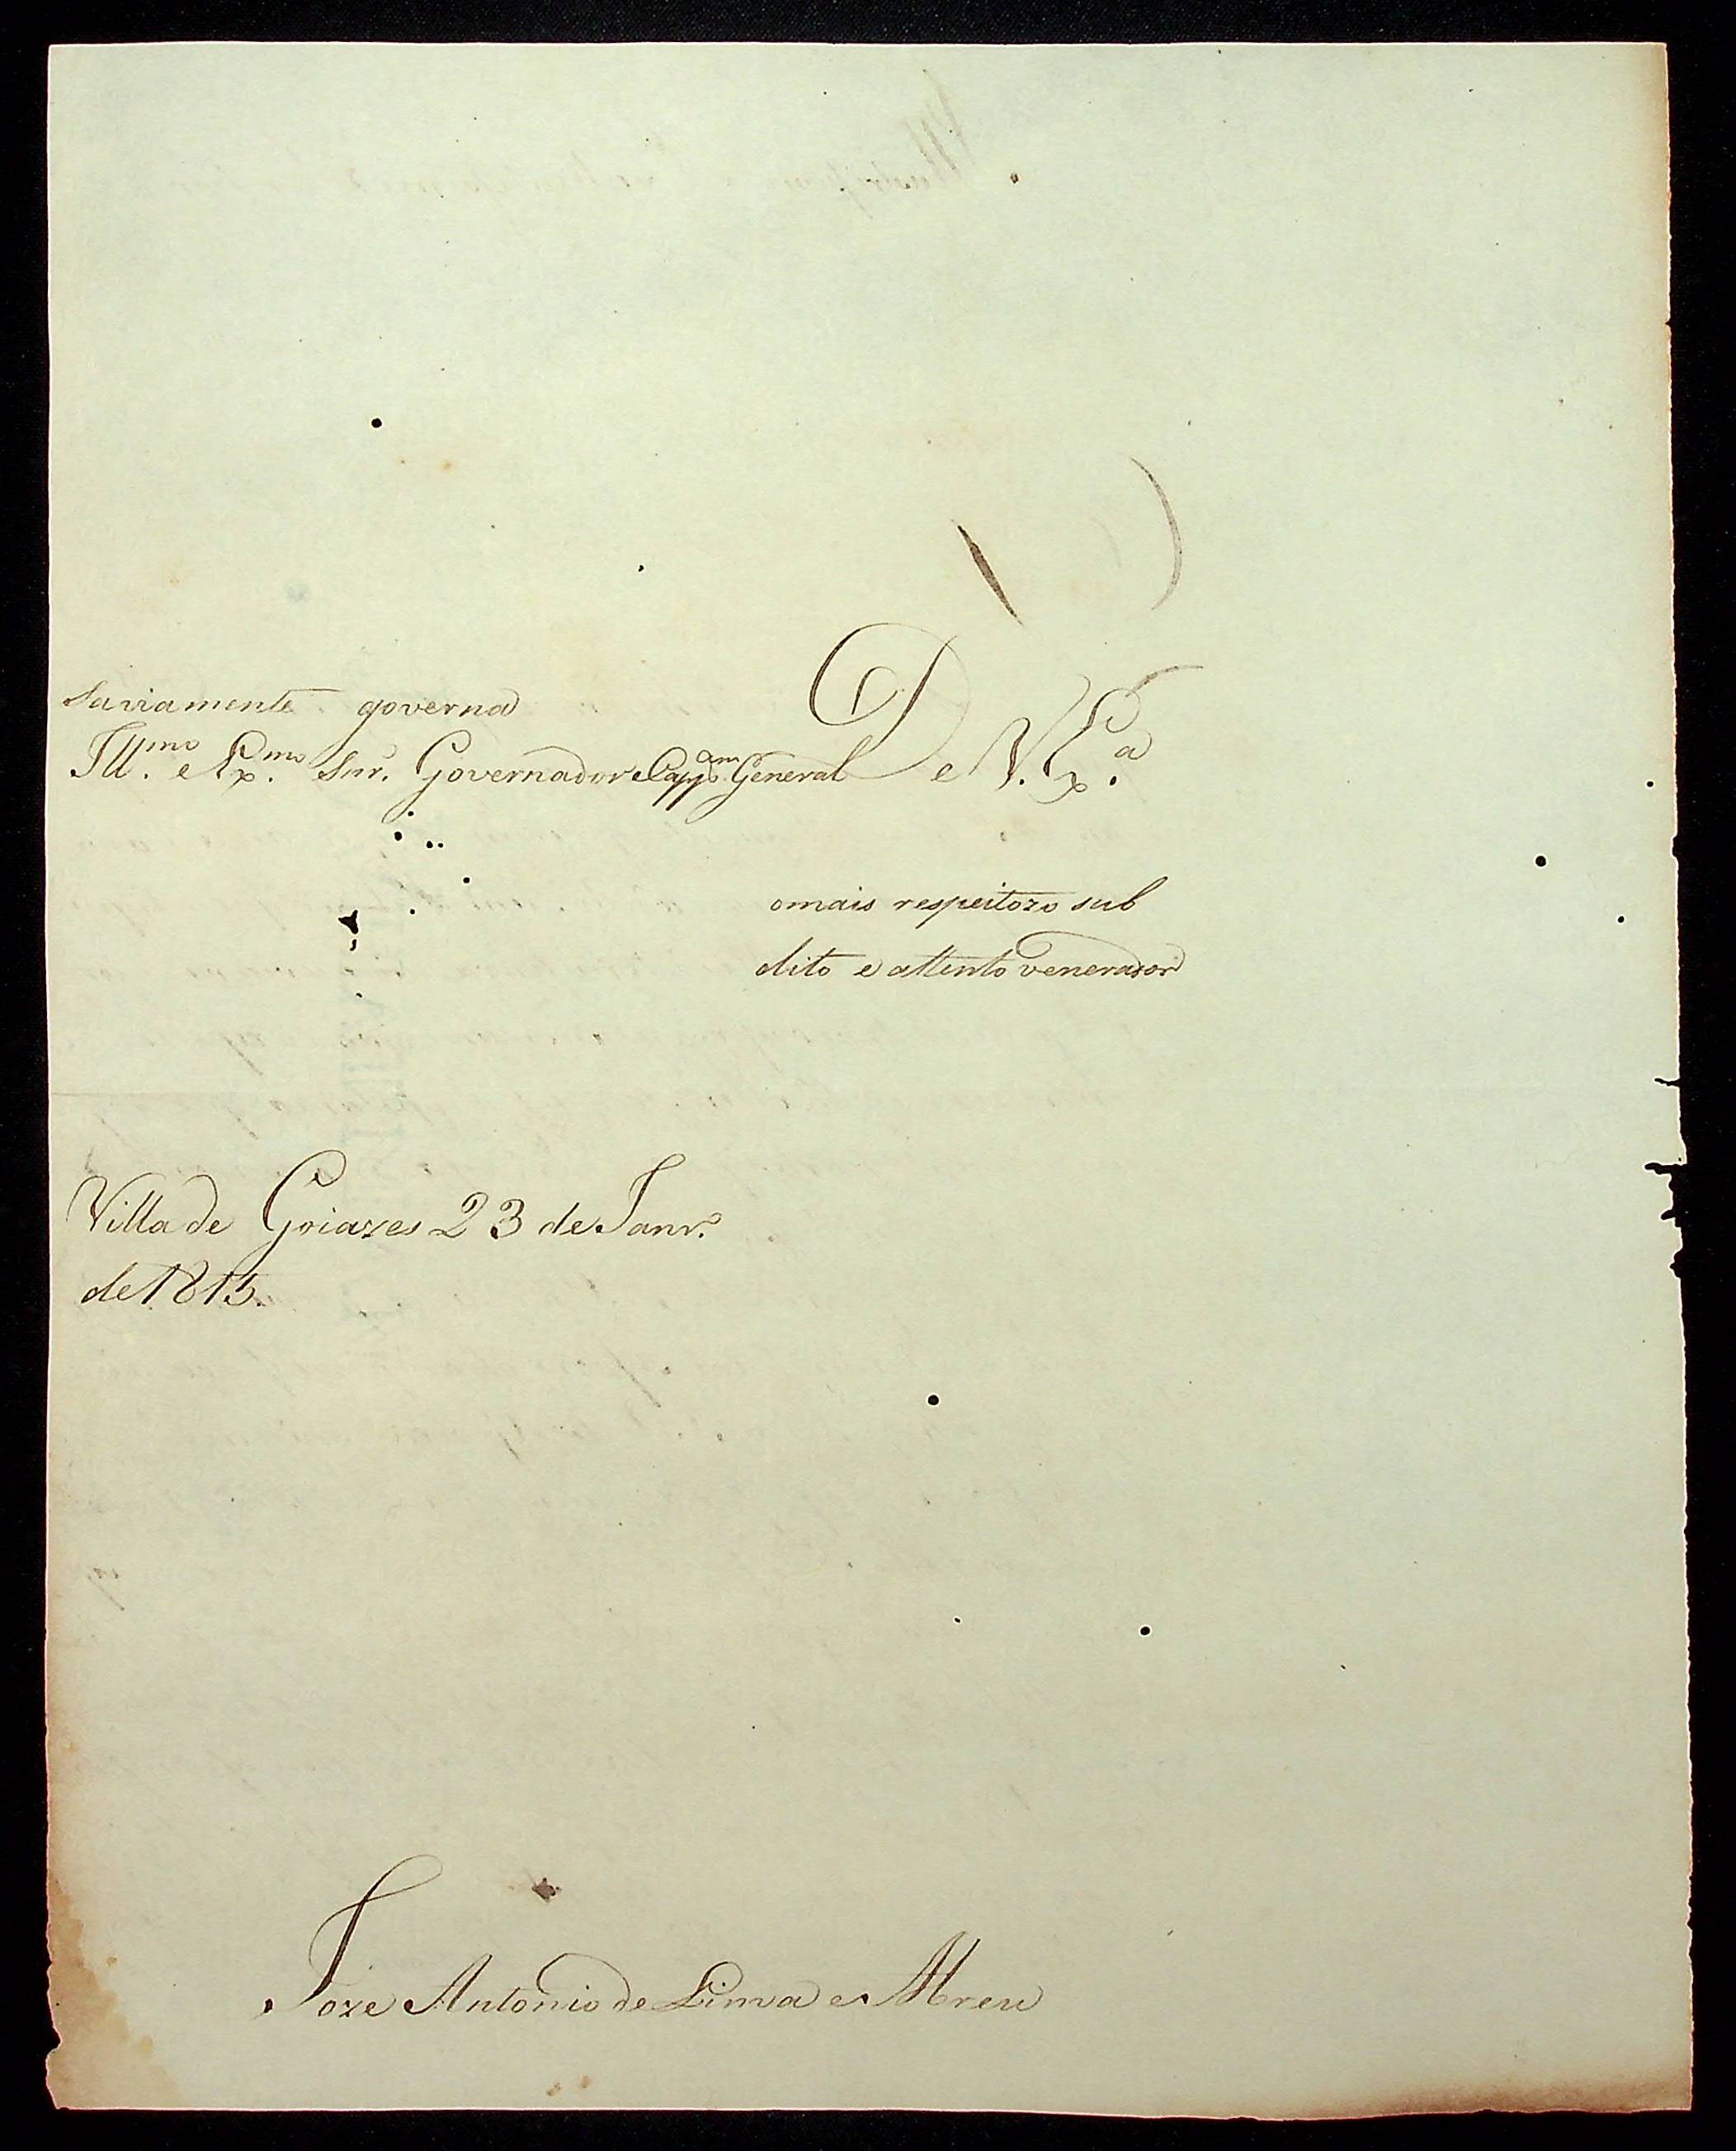 saviamente governa
Ill.mo e Ex.mo Snr. Governador e Capp.am General De V. Ex.a
omais respeitozo sub
dito e attento venerador
Villa de Goiazes 23 de Janr.o
de 1815.
Joze Antonio de Lima e Abreu